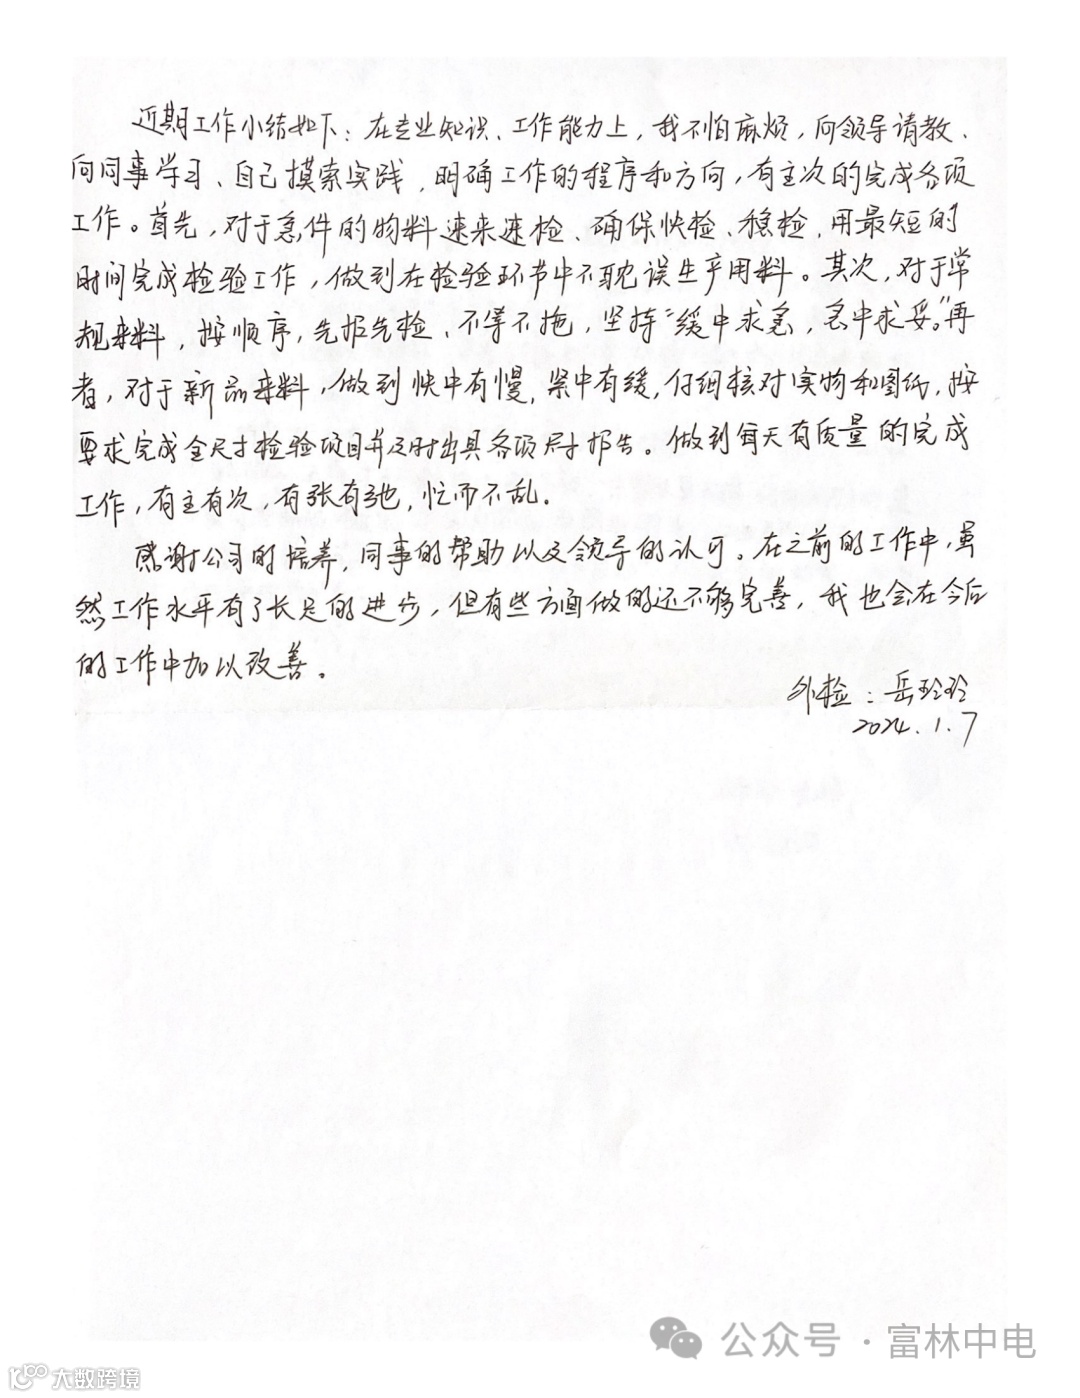 近期工作小结如下：在专业知识、工作能力上，我不怕麻烦，向领导请教、
向同事学习、自己摸索实践，明确工作的程序和方向，有主次的完成各项
工作。首先，对于急件的物料速来速检、确保快检、稳检，用最短的
时间完成检验工作，做到在检验环节中不耽误生产用料。其次，对于常
规来料，按顺序，先报先检、不等不拖，坚持“缓中求急，急中求妥。”再
者，对于新品来料，做到快中有慢，紧中有缓，仔细核对实物和图纸，按
要求完成全尺寸检验项目并及时出具各项尺寸报告。做到每天有质量的完成
工作，有主有次，有张有弛，忙而不乱.
感谢公司的培养，同事的帮助以及领导的认可。在之前的工作中，虽
然工作水平有了长足的进步，但有些方面做的还不够完善，我也会在今后
的工作中加以改善。
外检：岳玲玲
2024.1.7
公众号·富林中电
大数跨境